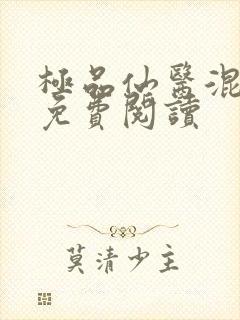 極品仙醫混
免費閱讀
莫清少主